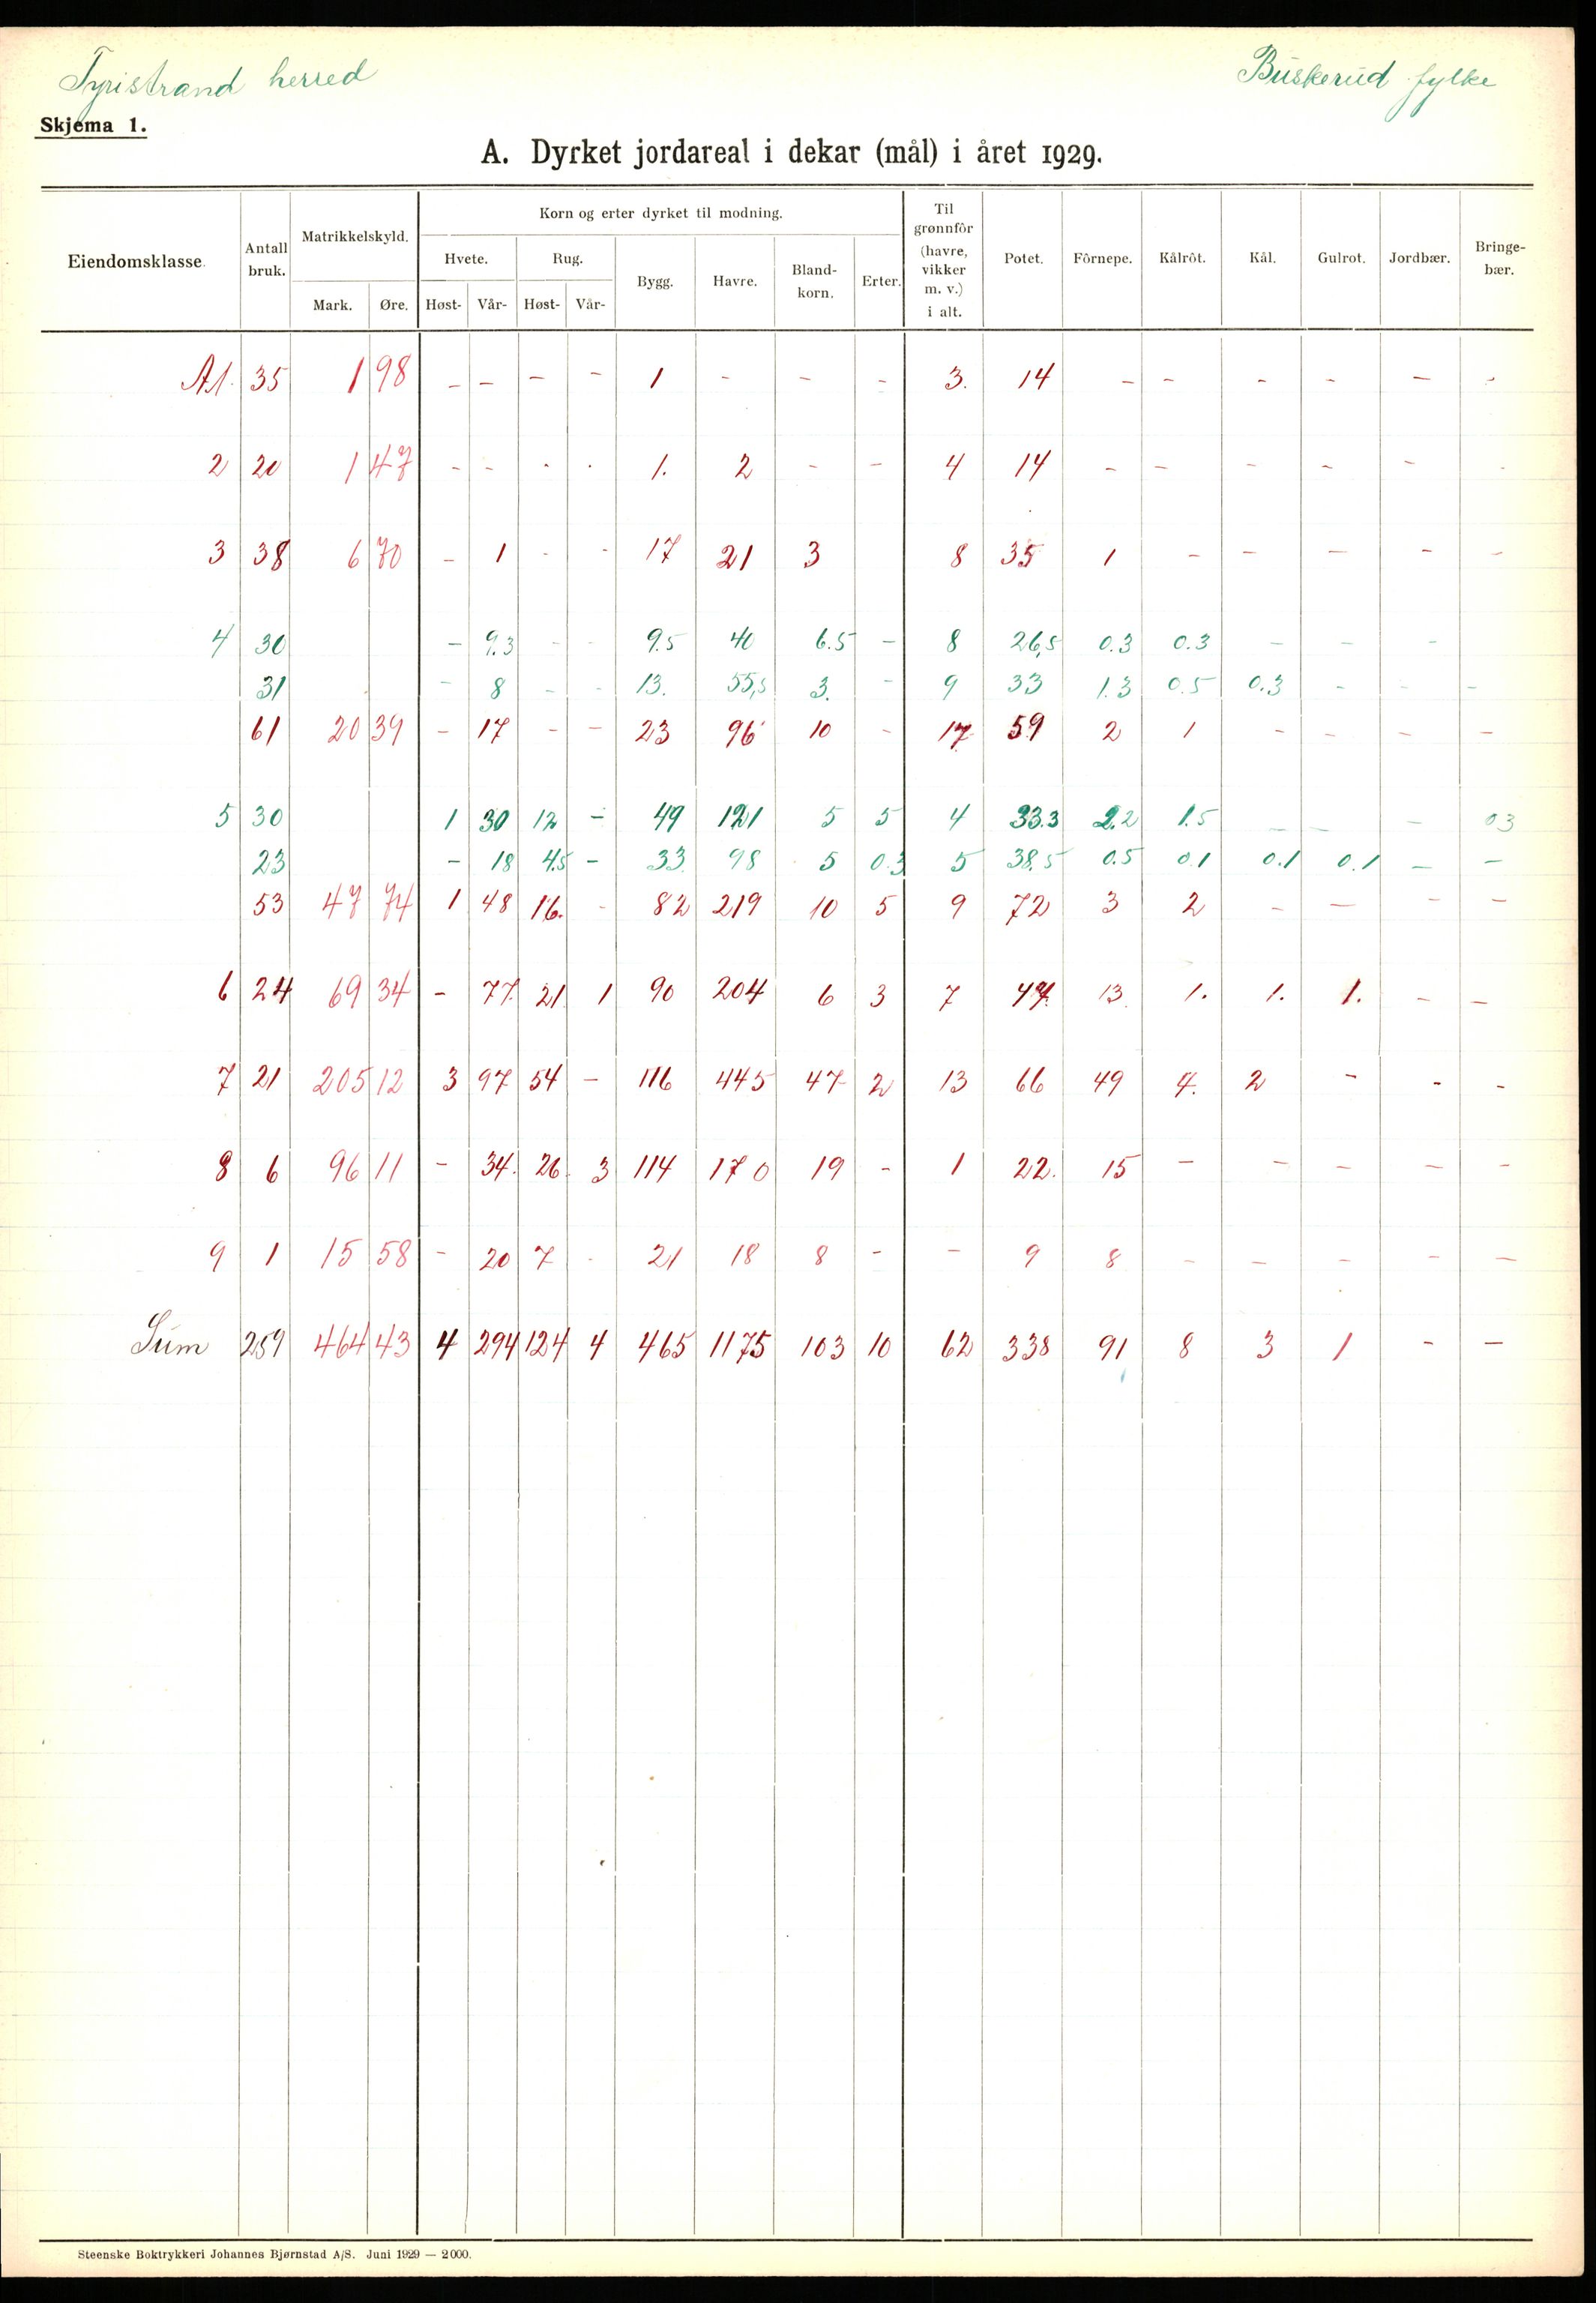 Tyristrand herred Buskerud fylke
Skjema 1.
A. Dyrket jordareal i dekar (mål) i året 1929.
Eiendomsklasse. Antall bruk. Matrikkelskyld. Korn og erter dyrket til modning. Til grønnfôr (havre, vikker m. v.) i alt. Potet. Fôrnepe. Kålrôt. Kål. Gulrot. Jordbær. Bringe-bær.
Hvete. Rug. Bygg. Havre. Bland-korn. Erter.
Mark. Øre. Høst- Vår- Høst- Vår-
A1. 35 1 98 - - - - 1 - - - 3. 14 - - - - - -
2 20 1 47 - - - - 1. 2 - - 4 14 - - - - - -
3 38 6 70 - 1 - - 17 21 3 8 35 1 - - - - -
4 30 - 9.3 - - 9.5 40 6.5 - 8 26,5 0.3 0.3 - - -
31 - 8 - - 13. 55,5 3. - 9 33 1.3 0.5 0.3 - - -
61 20 39 - 17 - - 23 96 10 - 17 59 2 1 - - - -
5 30 1 30 12 - 49 121 5 5 4 33.3 2.2 1.5 - - - 03
23 - 18 4.5 - 33. 98 5 0.3 5 38.5 0.5 0.1 0.1 0.1 - -
53 47 74 1 48 16. - 82 219 10 5 9 72 3 2 - - - -
6 24 69 34 - 77. 21 1 90 204 6 3 7 47. 13. 1. 1. 1. - -
7 21 205 12 3 97 54 - 116 445 47 2 13 66 49 4. 2 - - -
8 6 96 11 - 34. 26. 3 114 170 19 - 1 22. 15 - - - - -
9 1 15 58 - 20 7 - 21 18 8 - - 9 8 - - - - -
Sum 259 464 43 4 294 124 4 465 1175 103 10 62 338 91 8 3 1 - -
Steenske Boktrykkeri Johannes Bjørnstad A/S. Juni 1929 — 2000.